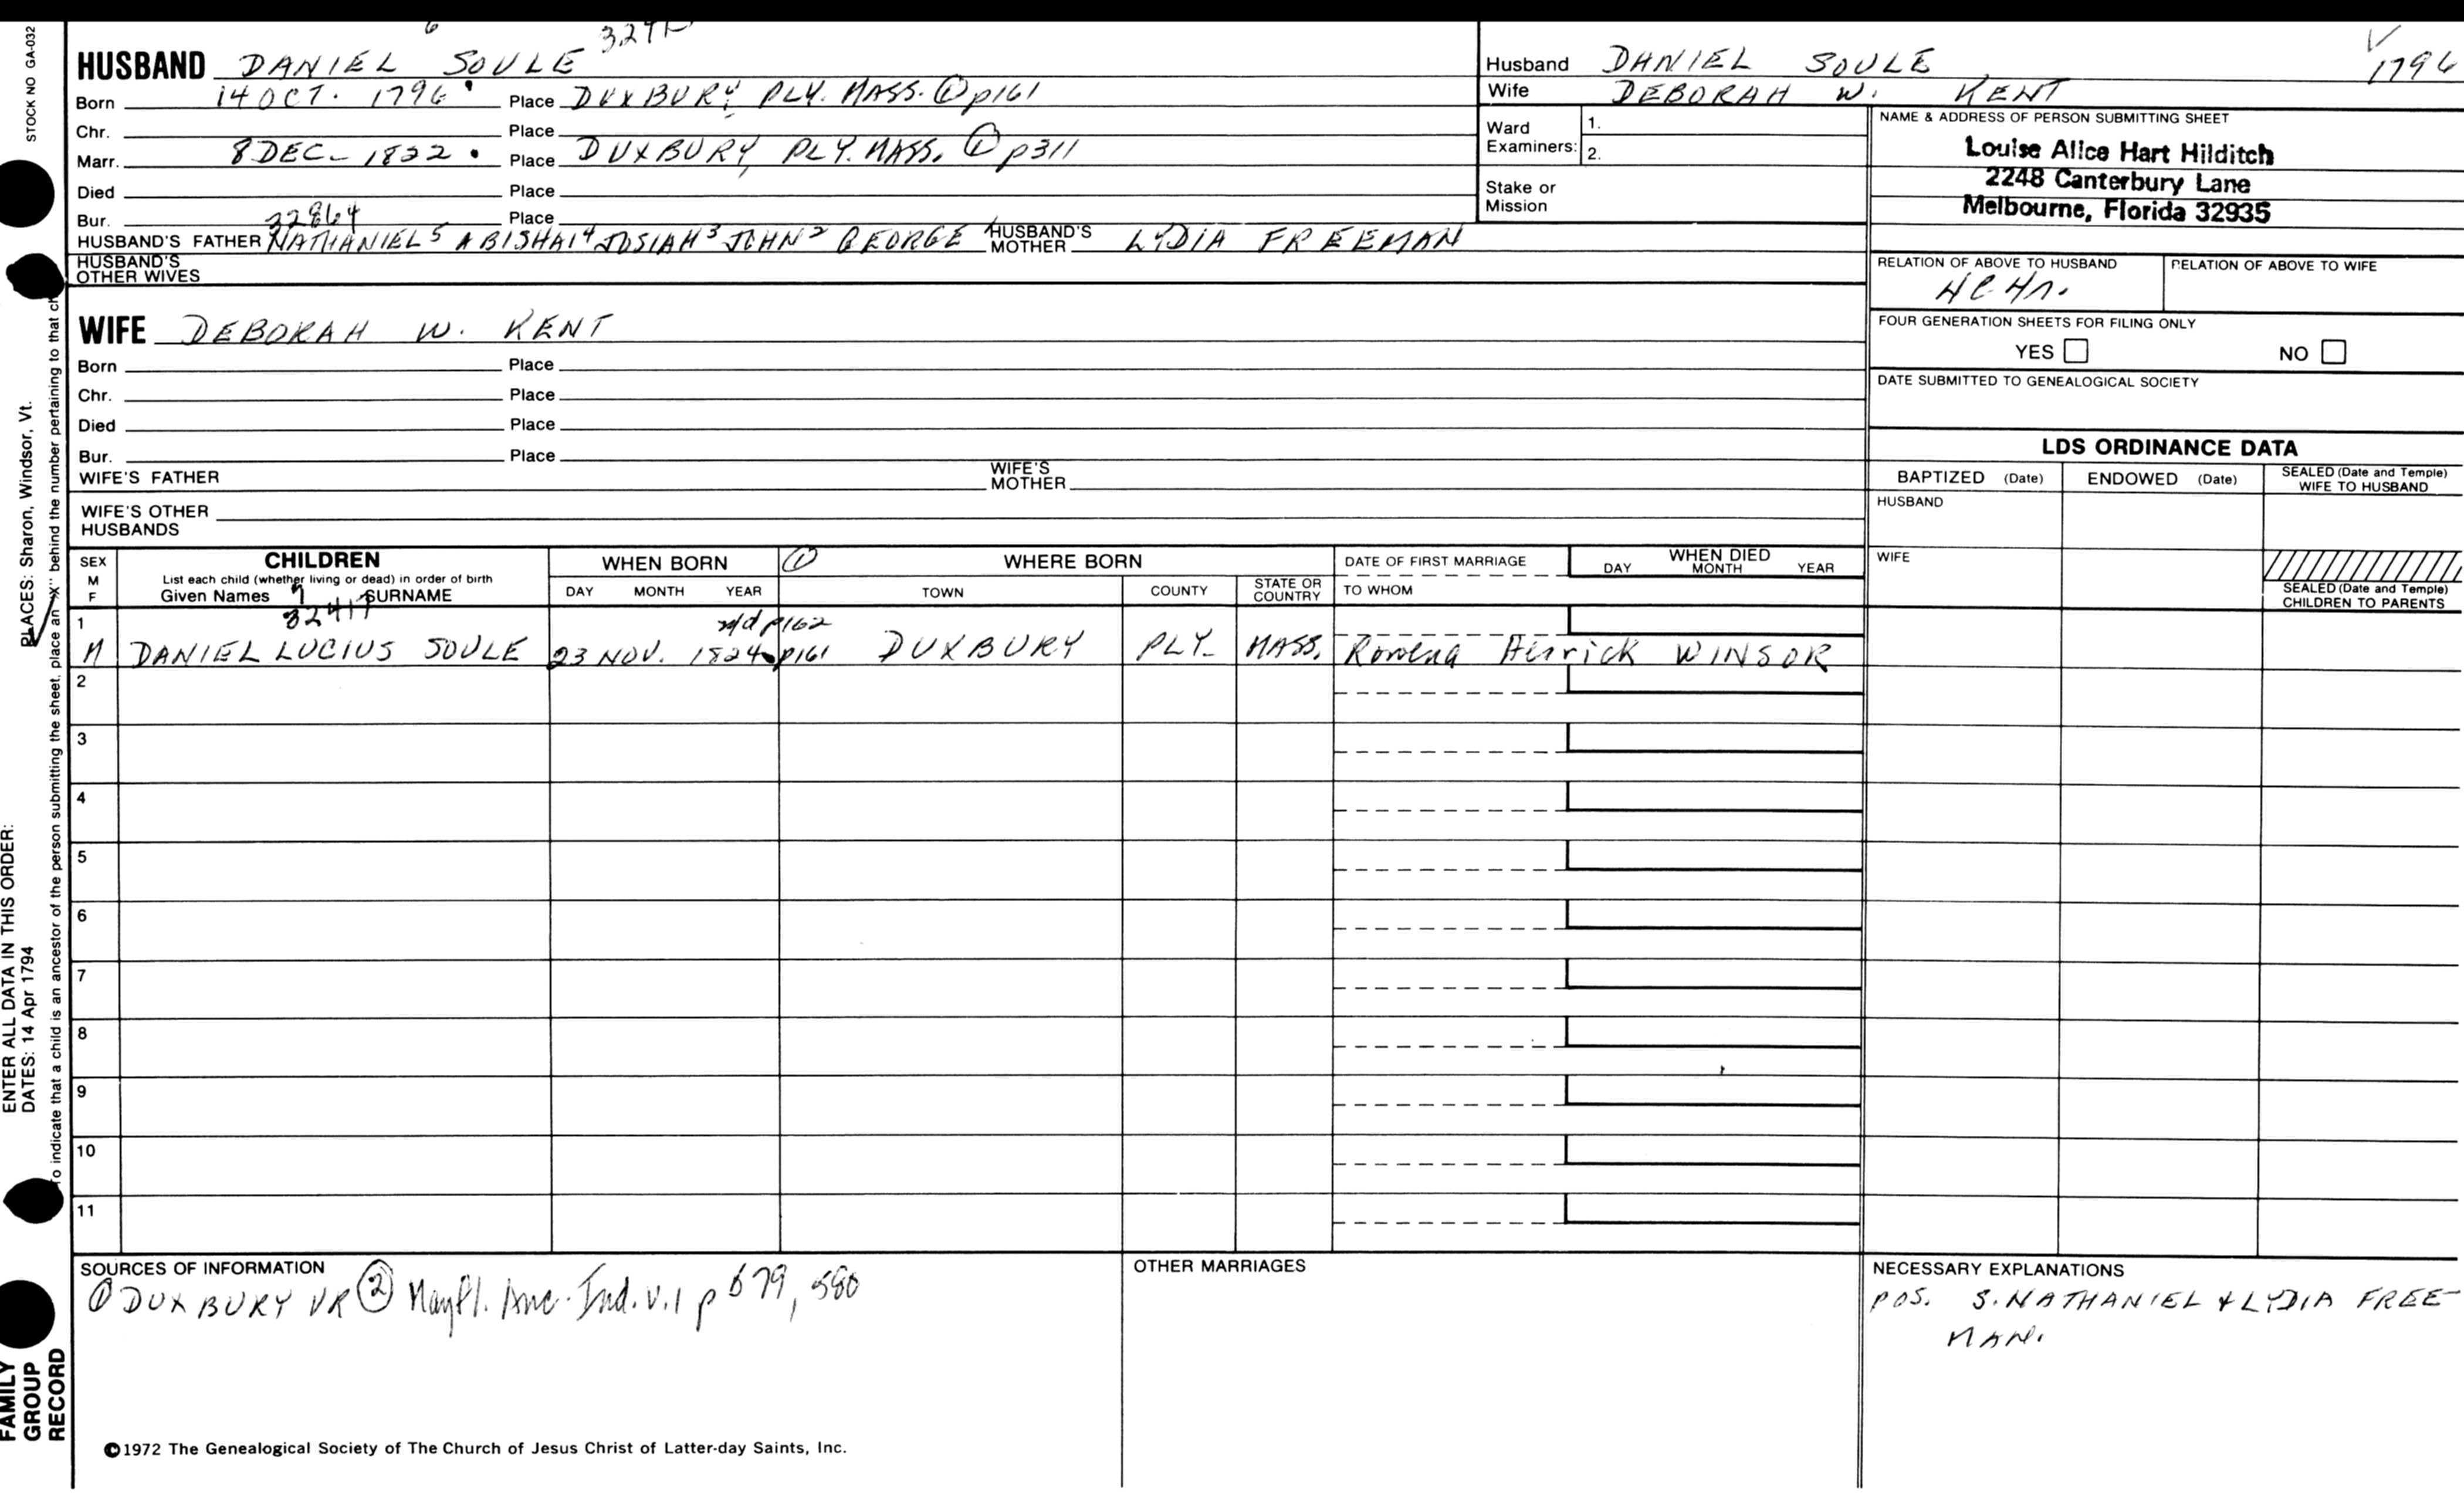 STOCK NO GA-032
PLACES: Sharon, Windsor, Vt.
ENTER ALL DATA IN THIS ORDER:
DATES: 14 Apr 1794
To indicate that a child is an ancestor of the person submitting the sheet, place an "X" behind the number pertaining to that ch
FAMILY
GROUP
RECORD
6
HUSBAND DANIEL SOULE
Born 14 OCT. 1796 Place DUXBURY, PLY. MASS. ① p161
Chr. Place
Marr. 8 DEC- 1822 Place DUXBURY, PLY. MASS. ① p311
Died Place
22864
Bur. Place
HUSBAND'S FATHER NATHANIEL 5 ABISHAI 4 JOSIAH 3 JOHN 2 GEORGE HUSBAND'S MOTHER LYDIA FREEMAN
HUSBAND'S
OTHER WIVES
WIFE DEBORAH W. KENT
Born Place
Chr. Place
Died Place
Bur. Place
WIFE'S FATHER WIFE'S MOTHER
WIFE'S OTHER
HUSBANDS
Husband DANIEL SOULE 1796
Wife DEBORAH W. KENT
Ward
Examiners:
1.
2.
Stake or
Mission
NAME & ADDRESS OF PERSON SUBMITTING SHEET
Louise Alice Hart Hilditch
2248 Canterbury Lane
Melbourne, Florida 32935
RELATION OF ABOVE TO HUSBAND RELATION OF ABOVE TO WIFE
FOUR GENERATION SHEETS FOR FILING ONLY
YES NO
DATE SUBMITTED TO GENEALOGICAL SOCIETY
LDS ORDINANCE DATA
BAPTIZED (Date) ENDOWED (Date) SEALED (Date and Temple) WIFE TO HUSBAND
HUSBAND
WIFE
SEALED (Date and Temple)
CHILDREN TO PARENTS
SEX
M
F
CHILDREN
List each child (whether living or dead) in order of birth
Given Names SURNAME
WHEN BORN
DAY MONTH YEAR
① WHERE BORN
TOWN COUNTY STATE OR COUNTRY
DATE OF FIRST MARRIAGE
TO WHOM
WHEN DIED
DAY MONTH YEAR
1
p162
M DANIEL LUCIUS SOULE 23 NOV. 1824 p161 DUXBURY PLY- MASS. Rowena Herrick WINSOR
2
3
4
5
6
7
8
9
10
11
SOURCES OF INFORMATION
① DUXBURY VR ② Mayfl. Ind. v.1 p 679, 580
OTHER MARRIAGES
NECESSARY EXPLANATIONS
POS. S. NATHANIEL & LYDIA FREE-
MAN.
©1972 The Genealogical Society of The Church of Jesus Christ of Latter-day Saints, Inc.